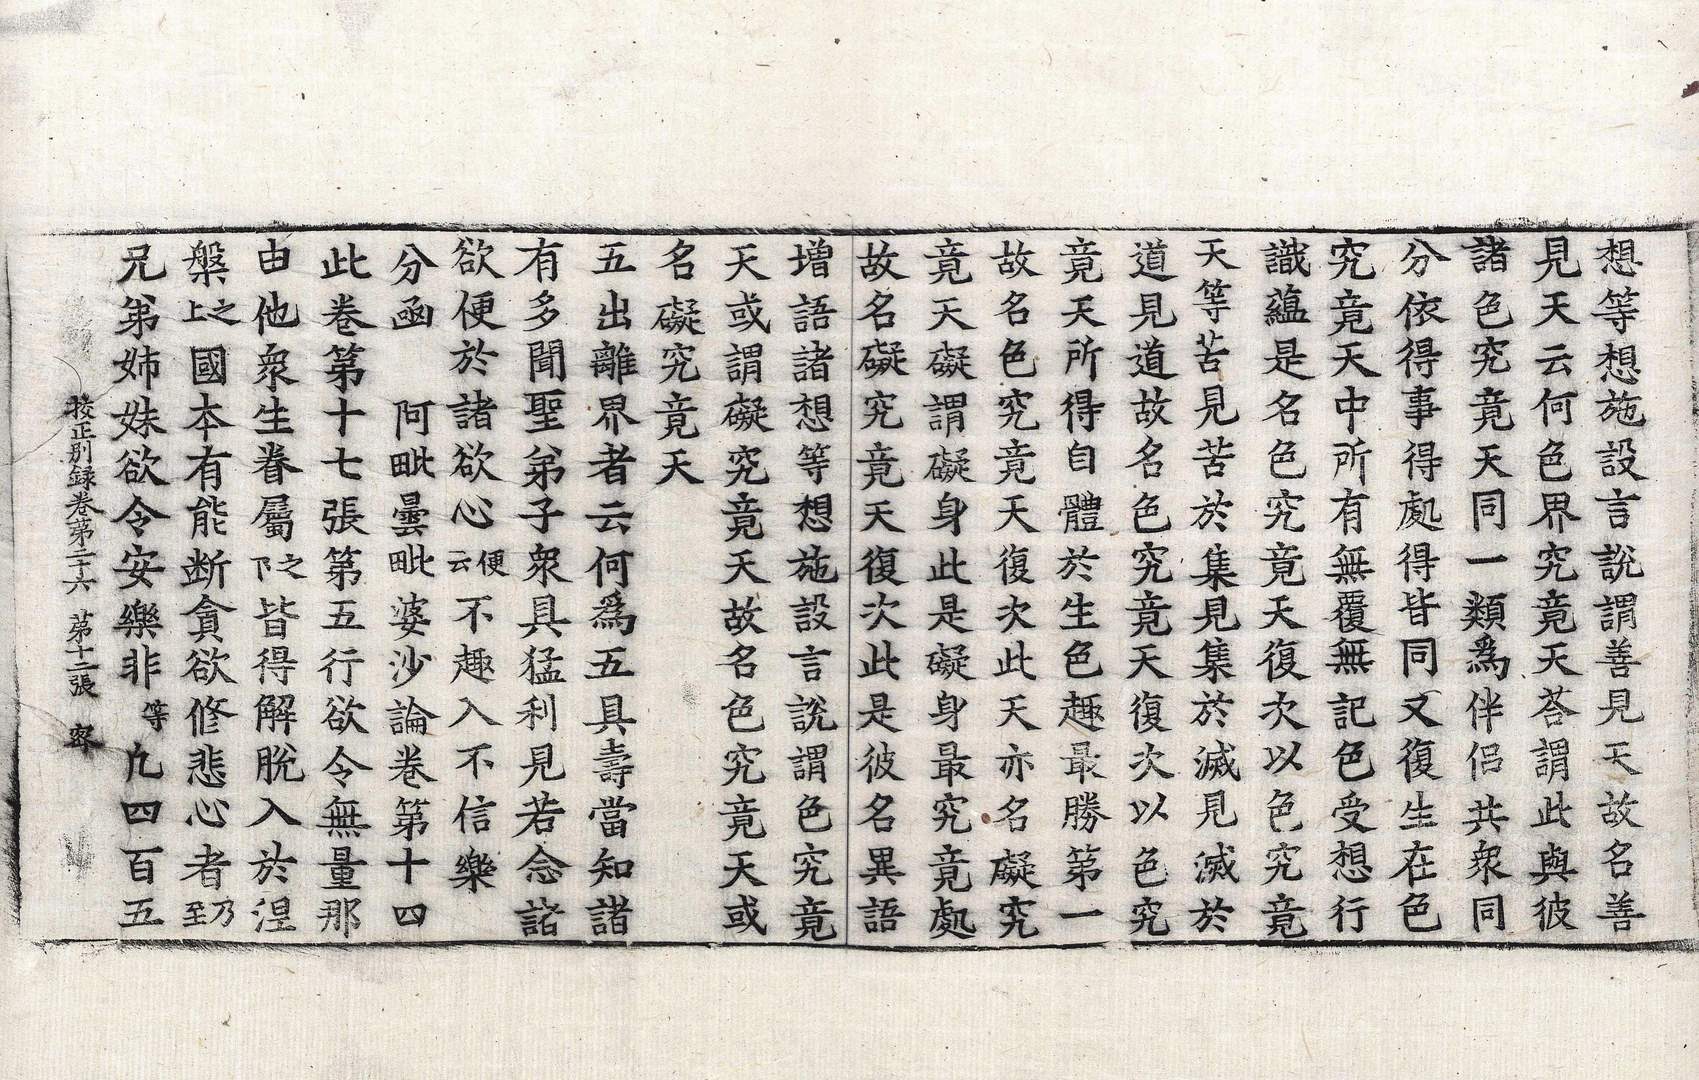 想等想施設言說謂善見天故名善
見天云何色界究竟天荅謂此與彼
諸色究竟天同一類爲伴侶共衆同
分依得事得處得皆同又復生在色
究竟天中所有無覆無記色受想行
識蘊是名色究竟天復次以色究竟
天等苦見苦於集見集於滅見滅於
道見道故名色究竟天復次以色究
竟天所得自體於生色趣最勝第一
故名色究竟天復次此天亦名礙究
竟天礙謂礙身此是礙身最究竟處
故名礙究竟天復次此是彼名異語
增語諸想等想施設言說謂色究竟
天或謂礙究竟天故名色究竟天或
名礙究竟天
五出離界者云何爲五具壽當知諸
有多聞聖弟子衆具猛利見若念諸
欲便於諸欲心便云不趣入不信樂
分函　阿毗曇毗婆沙論卷第十四
此卷第十七張第五行欲令無量那
由他衆生眷屬之下皆得解脫入於涅
槃之上國本有能断貪欲修悲心者乃至
兄弟姉妹欲令安樂非等凡四百五
挍正別録卷第二十六　第十二張　密